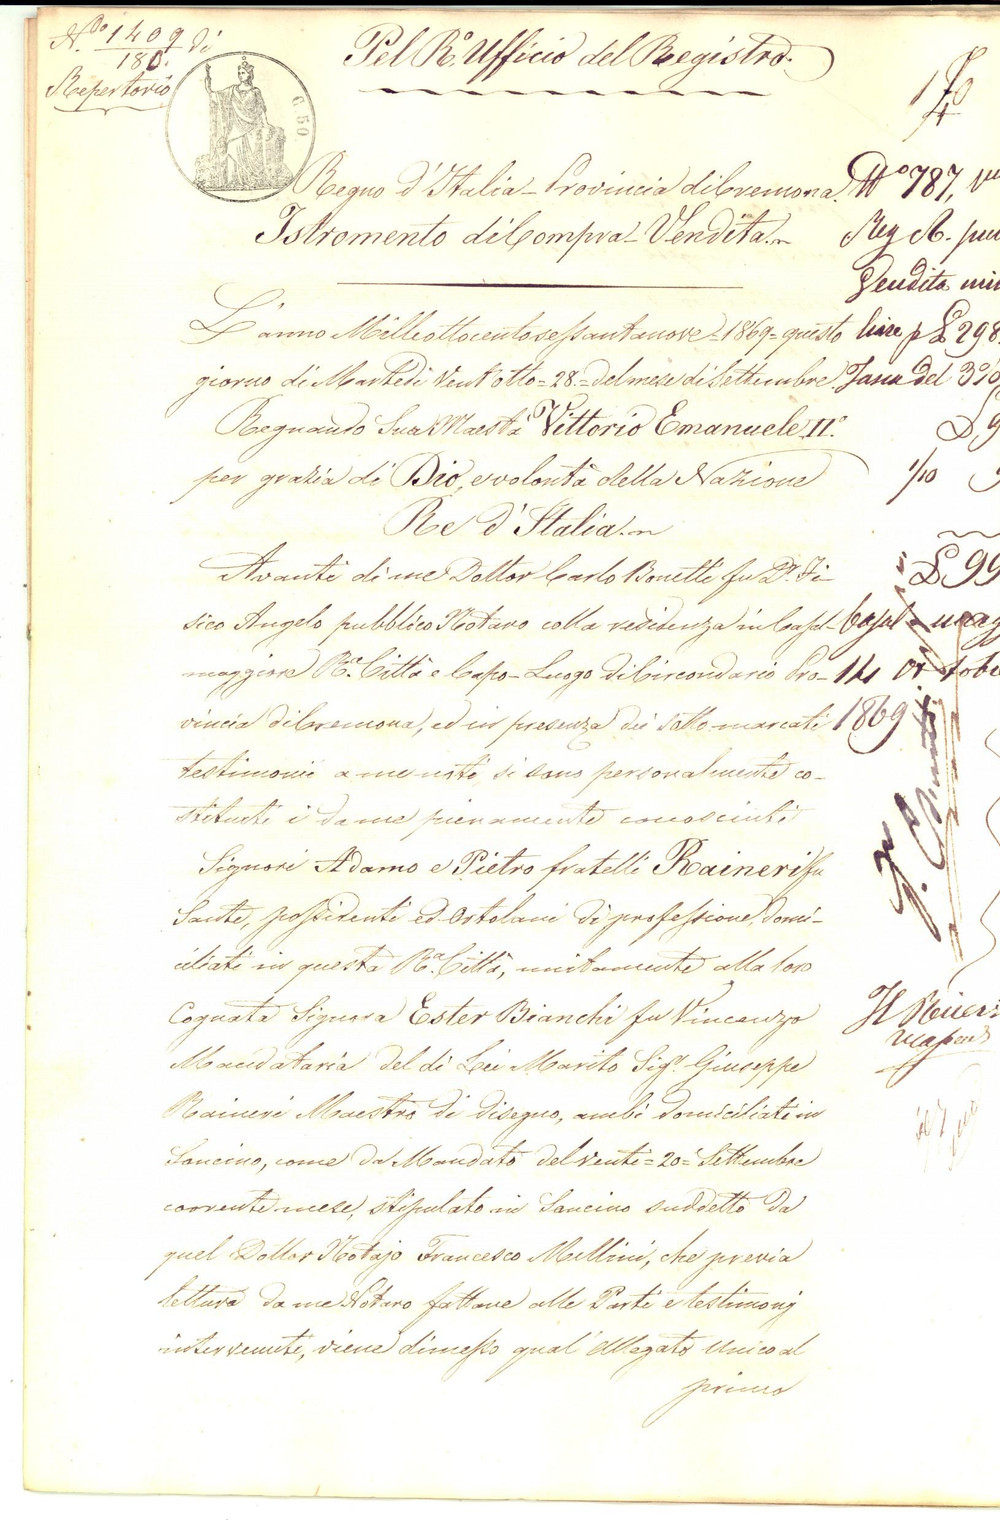 N.ro 1409 di
180.
Repertorio
Pel R.o Ufficio del Registro.
C. 50
Regno d'Italia - Provincia di Cremona.
Istromento di Compra-Vendita.
L'anno Milleottocentosessantanove = 1869 = questo
giorno di Martedi ventotto = 28 = del mese di Settembre
Regnando Sua Maestà Vittorio Emanuele II.o
per grazia di Dio, e volontà della Nazione
Re d'Italia.
Avanti di me Dottor Carlo Bonetti fu D.r Fi-
sico Angelo pubblico Notaro colla residenza in Casal-
maggiore R.a Città e Capo-Luogo di Circondario Pro-
vincia di Cremona, ed in presenza dei sotto marcati
testimonii a me noti, si sono personalmente co-
stituiti i da me pienamente conosciuti
Signori Adamo e Pietro fratelli Raineri fu
Sante, possidenti ed Ortolani di professione, domi-
ciliati in questa R.a Città, unitamente alla loro
Cognata Signora Ester Bianchi fu Vincenzo
Mandataria del di Lei Marito Sig.r Giuseppe
Raineri Maestro di disegno, ambi domiciliati in
Soncino, come da Mandato del venti = 20 = Settembre
corrente mese, stipulato in Soncino suddetto da
quel Dottor Notajo Francesco Mellini, che previa
lettura da me Notaro fattane alle Parti e testimonj
intervenuti, viene dimesso qual'Allegato unico al
primo
N.o 787,
Reg A.
Vendita
lire p £ 298
Tassa del 3%
1/10
£ 99
Casalmagg
14 Ottobre
1869
Il Ricev